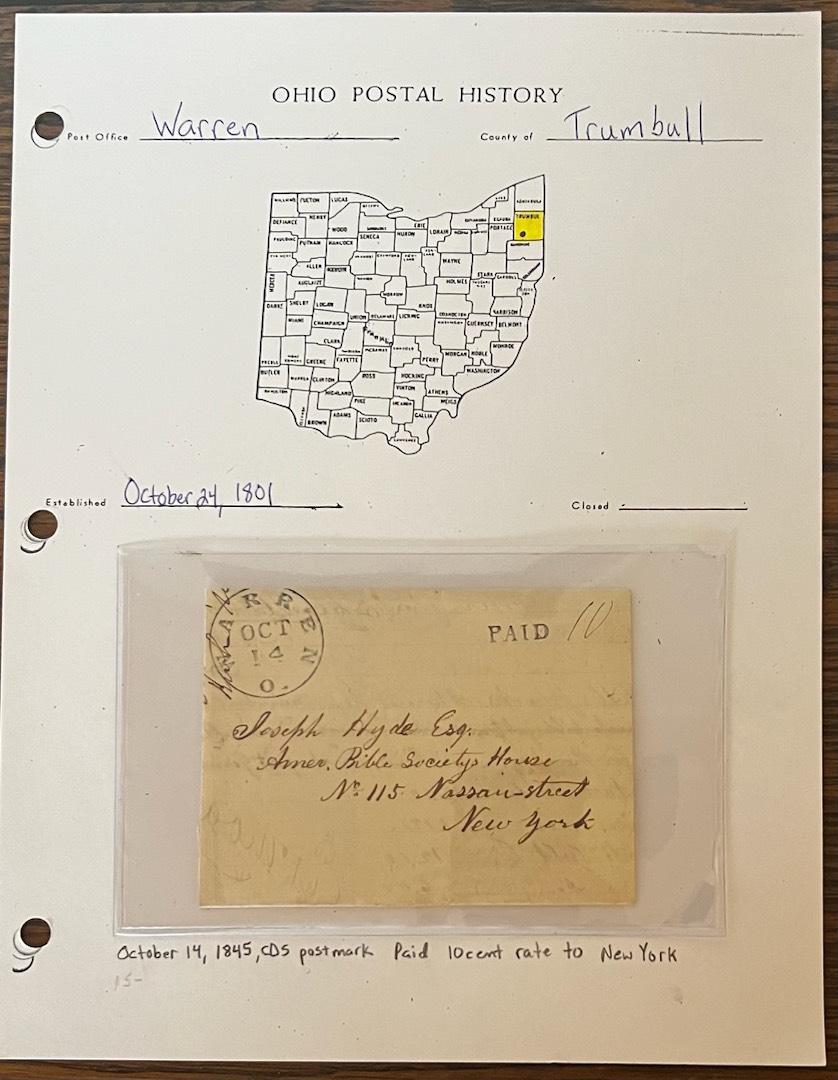 OHIO POSTAL HISTORY
Post Office Warren County of Trumbull
WILLIAMS FULTON LUCAS
DEFIANCE HENRY WOOD ERIE LORAIN PORTAGE TRUMBUL
PAULDING PUTNAM HANCOCK SENECA HURON
ALLEN WAYNE STARK
MERCER AUGLAIZE HOLMES
DARKE SHELBY LOGAN MORROW KNOX
MIAMI CHAMPAIGN UNION DELAWARE LICKING GUERNSEY BELMONT
CLARK MONROE
PREBLE GREENE FAYETTE PERRY MORGAN NOBLE
BUTLER WARREN CLINTON ROSS HOCKING WASHINGTON
HAMILTON HIGHLAND PIKE VINTON ATHENS MEIGS
BROWN ADAMS SCIOTO GALLIA
Established October 24, 1801 Closed
WARREN O.
OCT
14
PAID 10
Joseph Hyde Esq.
Amer. Bible Societys House
No. 115 Nassau-street
New York
October 14, 1845, CDS postmark Paid 10cent rate to New York
15-